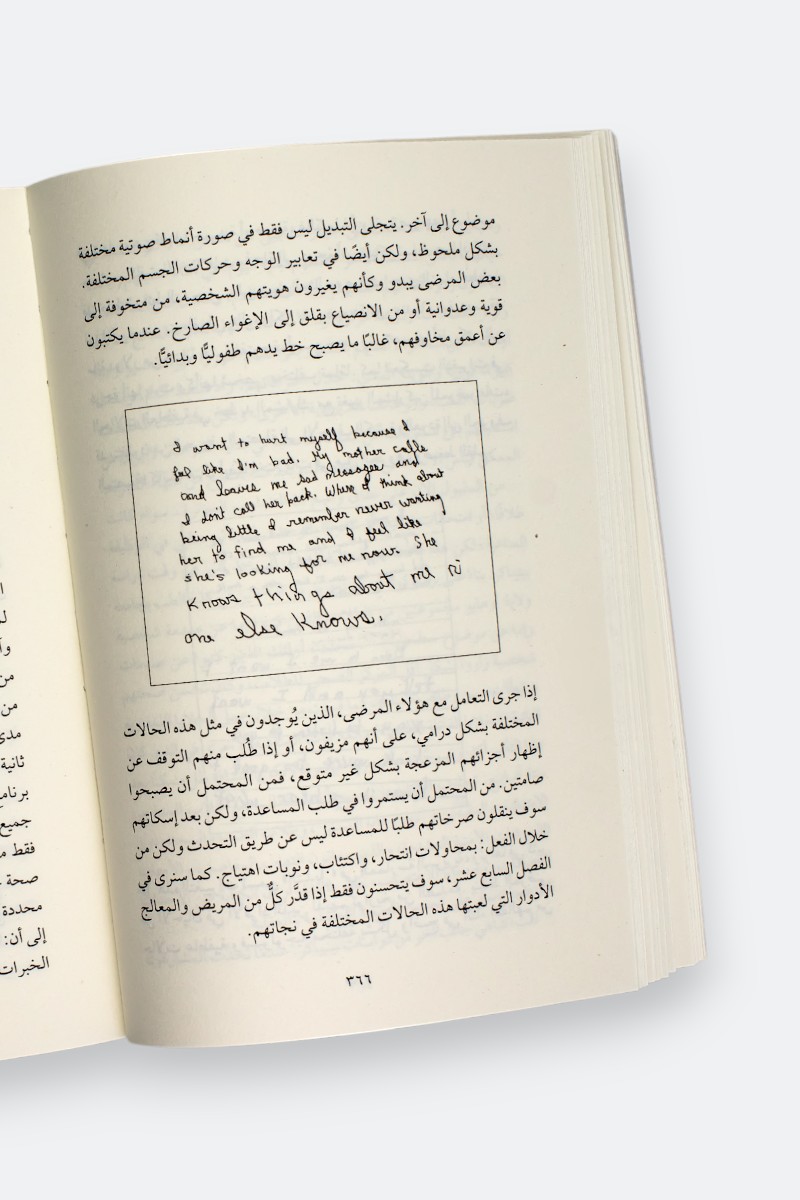 موضوع إلى آخر. يتجلى التبديل ليس فقط في صورة أنماط صوتية مختلفة
بشكل ملحوظ، ولكن أيضًا في تعابير الوجه وحركات الجسم المختلفة.
بعض المرضى يبدو وكأنهم يغيرون هويتهم الشخصية، من متخوفة إلى
قوية وعدوانية أو من الانصياع بقلق إلى الإغواء الصارخ. عندما يكتبون
عن أعمق مخاوفهم، غالبًا ما يصبح خط يدهم طفوليًّا وبدائيًّا.
I want to hurt myself because I
feel like I'm bad. My mother calls
and leaves me sad messages and
I don't call her back. When I think about
being little I remember never wanting
her to find me and I feel like
she's looking for me now. She
knows things about me
one else knows.
إذا جرى التعامل مع هؤلاء المرضى، الذين يُوجدون في مثل هذه الحالات
المختلفة بشكل درامي، على أنهم مزيفون، أو إذا طُلب منهم التوقف عن
إظهار أجزائهم المزعجة بشكل غير متوقع، فمن المحتمل أن يصبحوا
صامتين. من المحتمل أن يستمروا في طلب المساعدة، ولكن بعد إسكاتهم
سوف ينقلون صرخاتهم طلبًا للمساعدة ليس عن طريق التحدث ولكن من
خلال الفعل: بمحاولات انتحار، واكتئاب، ونوبات اهتياج. كما سنرى في
الفصل السابع عشر، سوف يتحسنون فقط إذا قدَّر كلٌّ من المريض والمعالج
الأدوار التي لعبتها هذه الحالات المختلفة في نجاتهم.
٣٦٦
من
من
مدى
ثانية
برنامج
جميع
فقط
صحة
محددة
إلى أن:
الخبرات